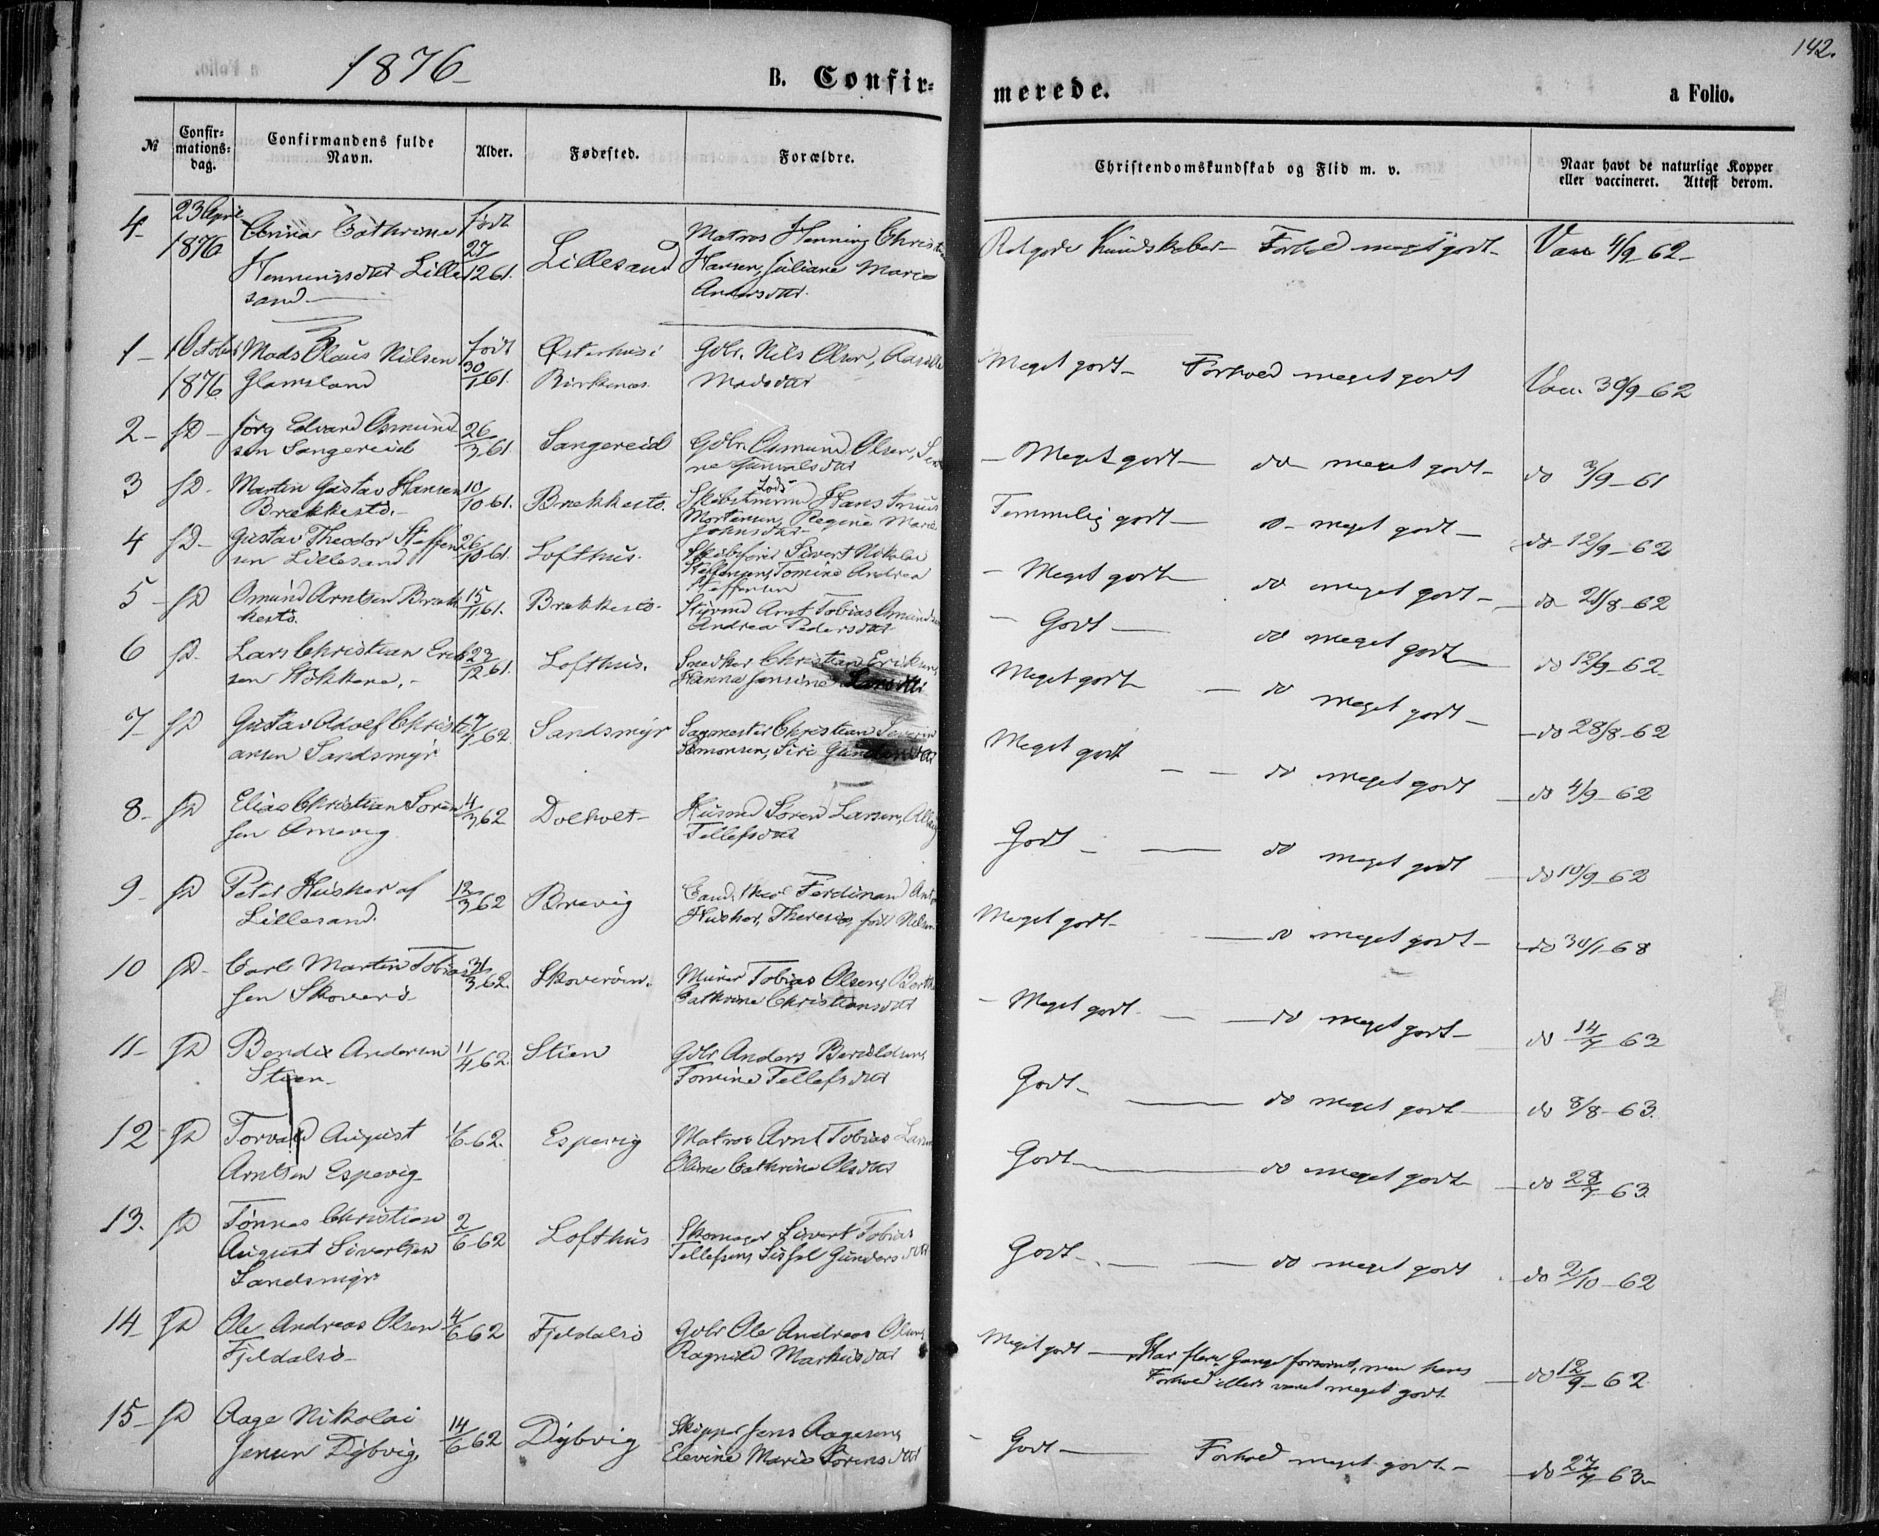 1876
142.
B. Confir=
merede.
a Folio.
№
Confir=
mations=
dag.
Confirmandens fulde
Navn.
Alder.
Fødested.
Forældre.
Christendomskundskab og Flid m. v.
Naar havt de naturlige Kopper
eller vaccineret. Attest derom.
4
23 April
1876
Cathrine
Henningsdtr Lille
sand
født
27/12 61.
Lillesand
Matros Henning Christ
Hansen, Juliane Marie
Andersdtr.
Retgode Kundskaber Forhold meget godt
Vacc 4/9 62
1
1 October
1876
Mads Olaus Nilsen
Glamsland
født
30/1 61.
Østerhus i
Birkenæs
Gbr. Nils Olsen,
Madsdtr
Meget godt Forhold meget godt
Vacc. 30/9 62
2
D
Jørg Edvard Osmund
sen Sangereid
26/3 61
Sangereid
Gbr. Osmund Olsen,
Meget godt do meget godt
do 3/9 61
3
D
Martin Gustav Hansen
Brækkestø.
10/10 61.
Brækkestø.
Lods
Hans Truls
Mortensen, Regine Marie
Johnsdtr
Temmelig godt meget godt
do 12/9 62
4
D
Gustav Theodor Steffen
sen Lillesand
26/10 61.
Lofthus.
Skibsfører Sivert Nikolai
Steffensen, Tomine Andrea
Steffensen
Meget godt do meget godt
do 21/8 62
5
D
Omund Arntsen Bræk
kestø.
15/11 61.
Brækkestø.
Styrmd Arnt Tobias Omundsen
Andrea Pedersdtr
Godt do meget godt
do 12/9 62
6
D
Lars Christian Erik
sen Stokkene.
23/12 61.
Lofthus.
Snedker Christian Eriksen,
Hanna Jensine Larsdtr
Meget godt do meget godt
do 28/8 62
7
D
Gustav Adolf Christi
ansen Sandsmyr
62
Sandsmyr
Sagmester Christian Severin
Simonsen, Siri Gundersdtr
Meget godt do meget godt
do 4/9 62
8
D
Elias Christian Søren
sen
4/3 62
Dolholt
Husmd Søren Larsen,
Tellefsdtr
Godt do meget godt
do 10/9 62
9
D
Peter Husher af
Lillesand.
12/3 62
Brevig
Cand. Ferdinand
Husher, Therese, født Nilsen
Meget godt do meget godt
do 30/1 68
10
D
Carl Martin Tobias
sen Skoverø
31/3 62.
Skoverøen.
Murer Tobias Olsen, Berthe
Cathrine Christiansdtr
Meget godt do meget godt
do 14/7 63
11
D
Bendix Andersen
Stien
11/4 62.
Stien
Gbr Anders Beruldsen,
Tomine Tellefsdtr
Godt do meget godt
do 8/8 63.
12
D
Torvald August
Arntsen Espevig
62.
Espevig
Matros Arnt Tobias Larsen
Oline Cathrine Olsdtr
Godt do meget godt
do 28/7 63.
13.
D
Tønnes Christian
August Sivertsen
Sandsmyr
2/6 62
Lofthus
Skomager Sivert Tobias
Tellefsen, Sissel Gundersdtr
Godt do meget godt
do 2/10 62
14
D
Ole Andreas Olsen
Fjeldalsø
4/6 62
Fjeldalsø
Gbr Ole Andreas Olsen,
Ragnild Markusdtr
Meget godt Har flere Gange forsømt, men hans
Forhold ellers været meget godt.
do 12/9 62
15
D
Aage Nikolai
Jensen Dybvig,
14/6 62
Dybvig
Skipper Jens Aagesen,
Elevine Marie Sørensdtr
Godt Forhold meget godt
do 27/7 63